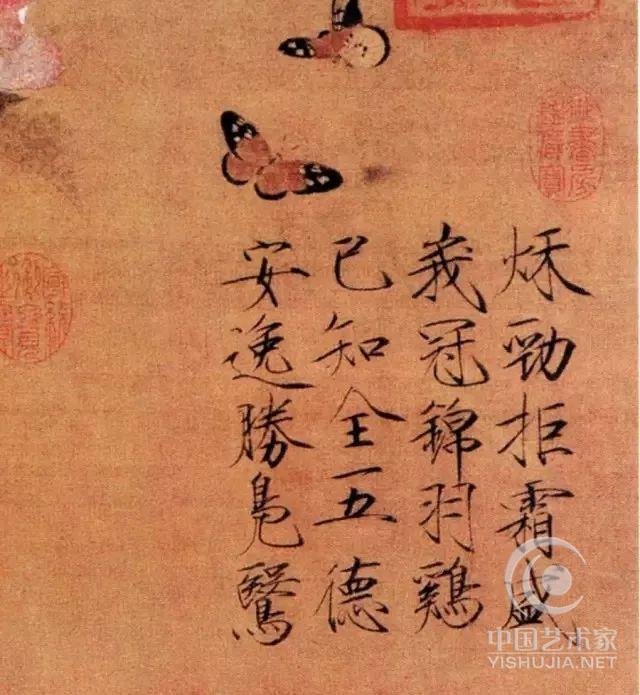 秋勁拒霜盛
峩冠錦羽鷄
已知全五德
安逸勝鳧鷖
中国艺术家
YISHUJIA.NET